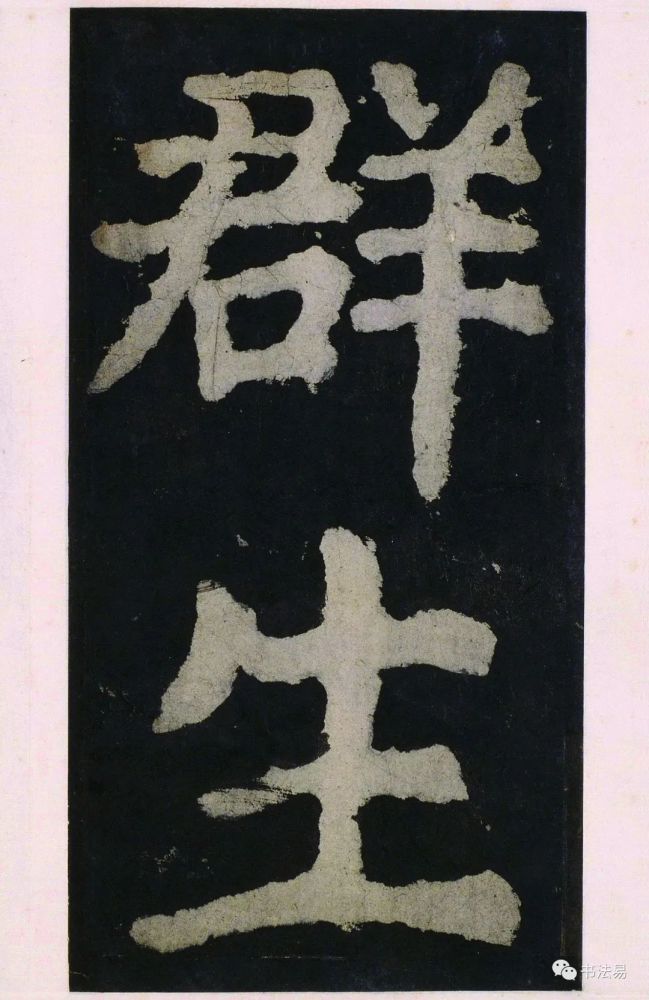 群
生
书法易